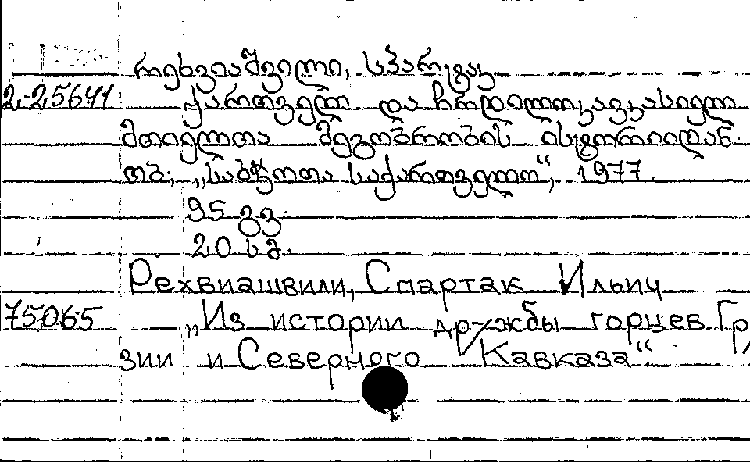 რეხვიაშვილი, სპარტაკ
2-25641 ქართველ და ჩრდილოკავკასიელ
მთიელთა მეგობრობის ისტორიიდან.
თბ., „საბჭოთა საქართველო“, 1977.
95 გვ.
20 სმ.
Рехвиашвили, Спартак Ильич
75065 „Из истории дружбы горцев Гру
зии и Северного Кавказа“